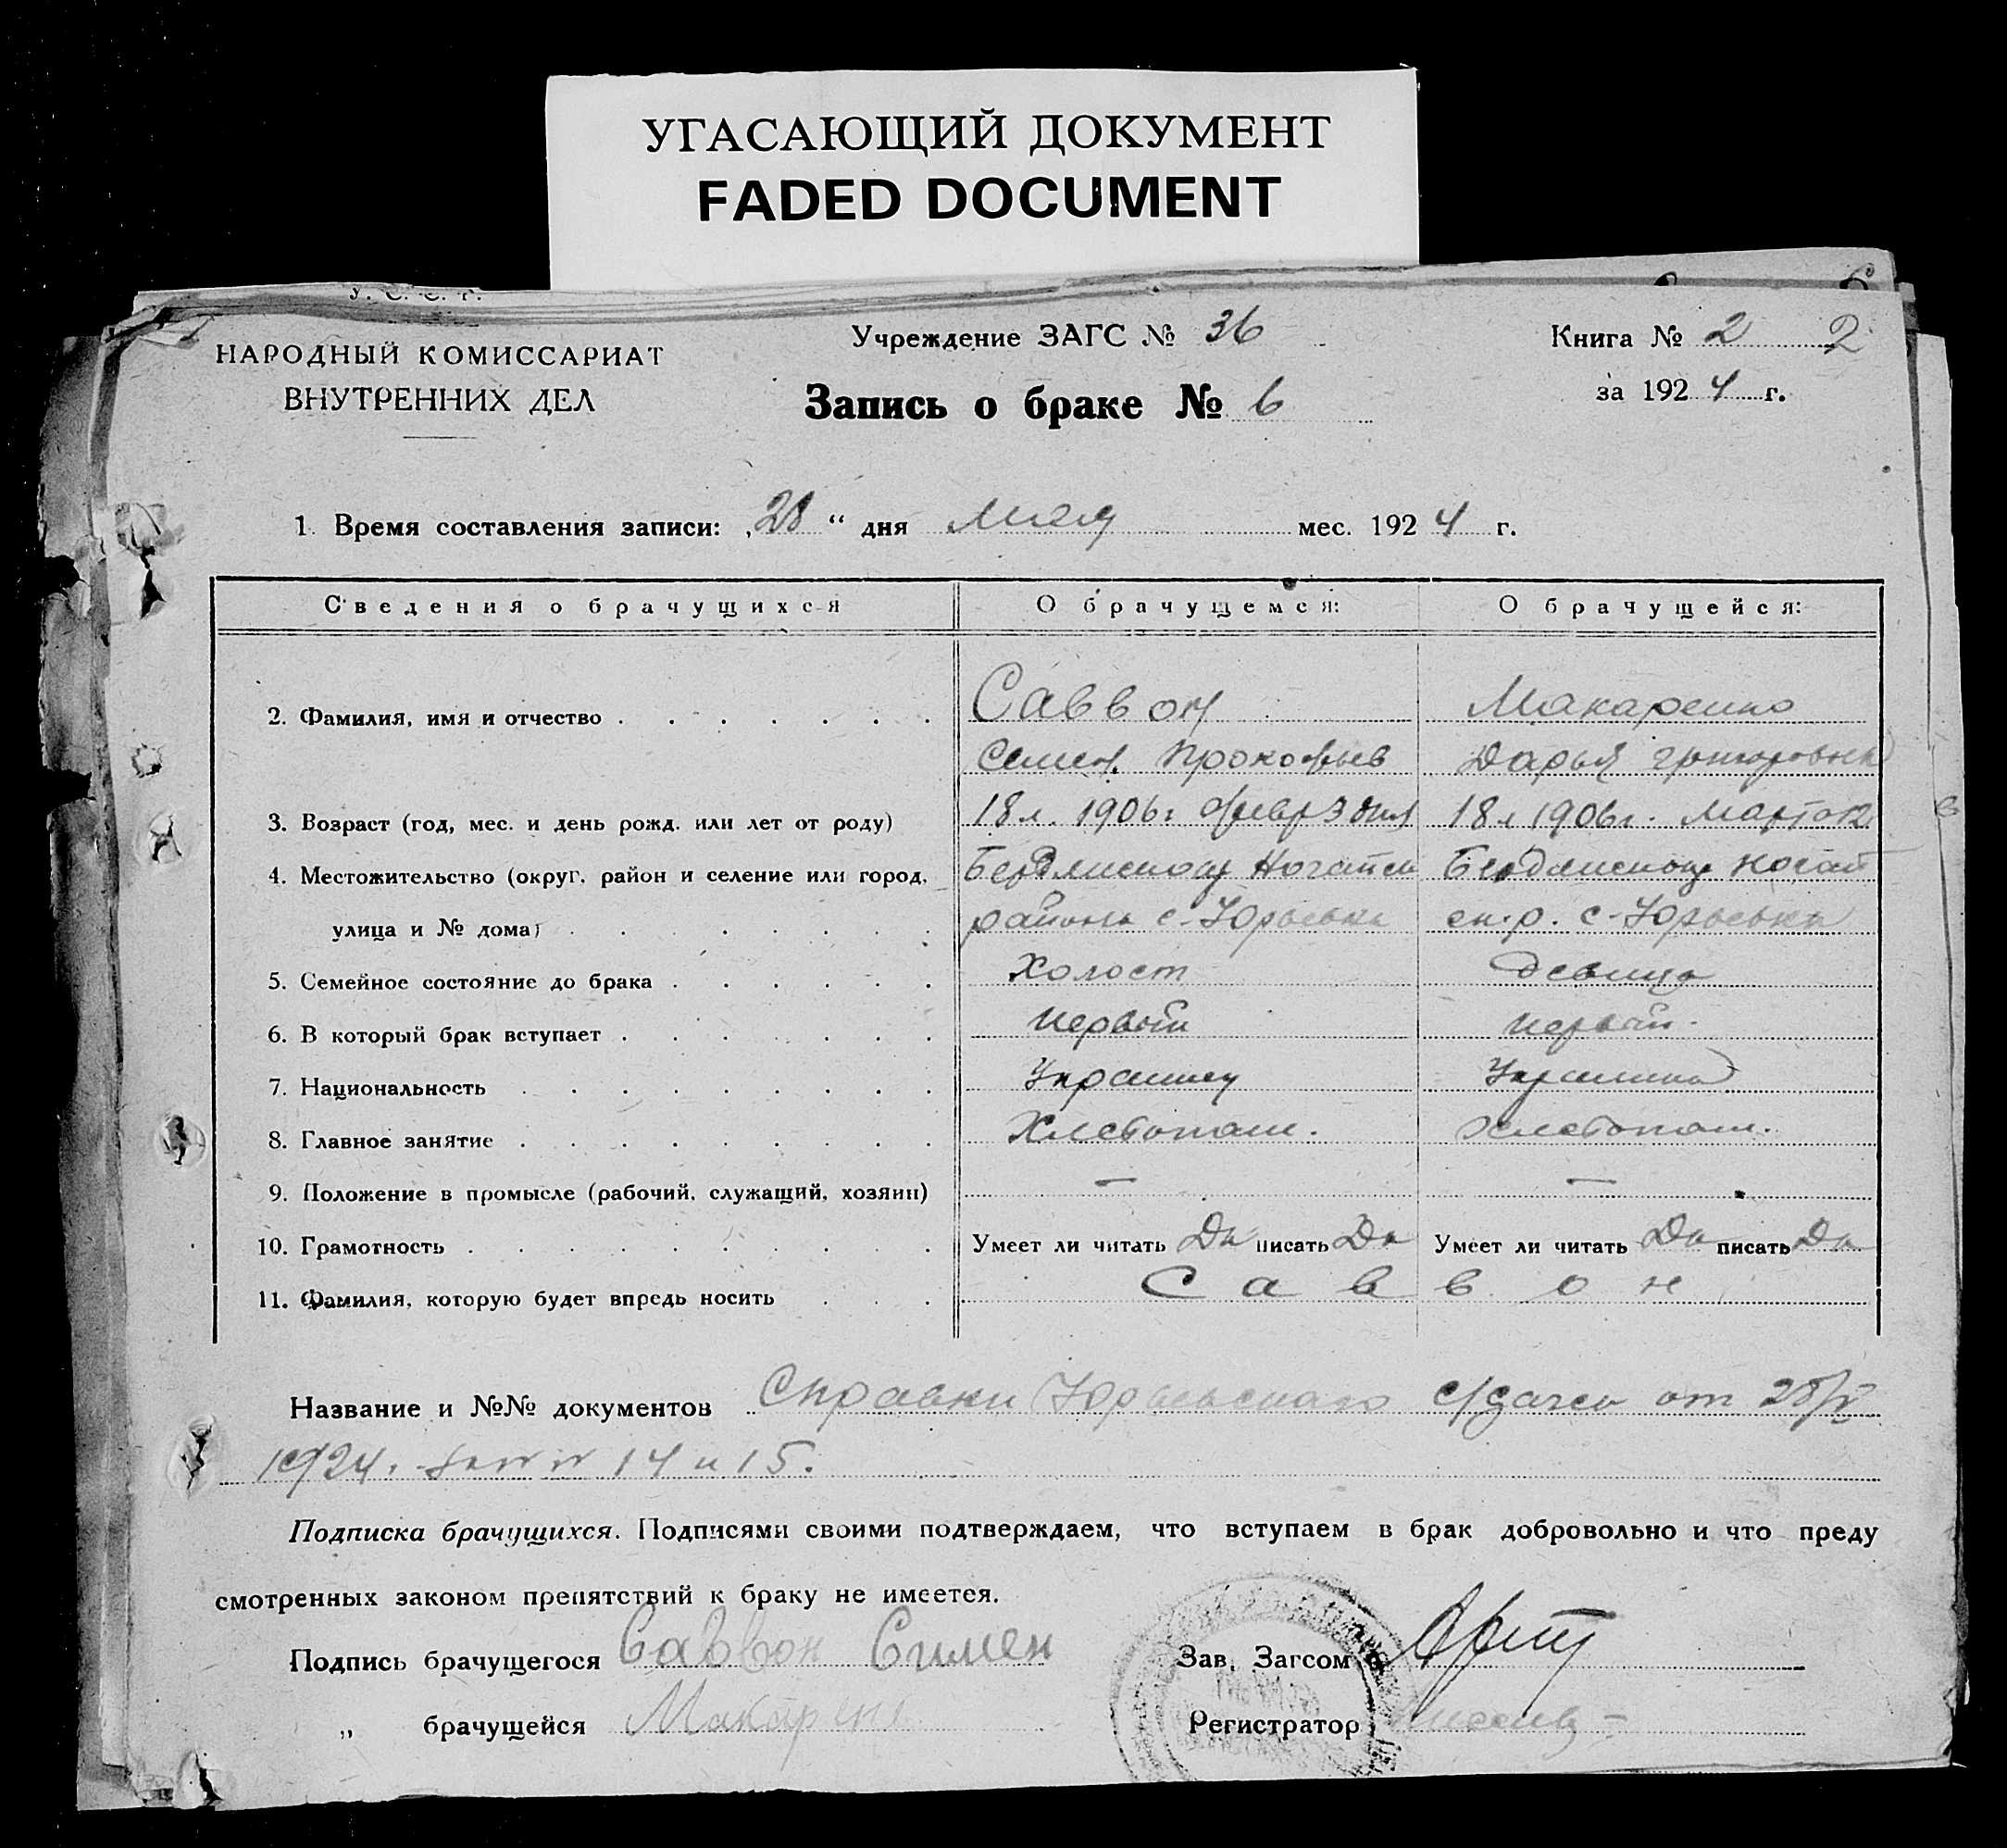 УГАСАЮЩИЙ ДОКУМЕНТ
FADED DOCUMENT
У. С. С. Р.
НАРОДНЫЙ КОМИССАРИАТ
ВНУТРЕННИХ ДЕЛ
Учреждение ЗАГС № 36
Книга № 2 2
Запись о браке № 6
за 1924 г.
1. Время составления записи: „28“ дня мая мес. 1924 г.
Сведения о брачущихся О брачущемся: О брачущейся:
2. Фамилия, имя и отчество Саввон Макаренко
Семен Прокофьев Дарья Григоровна
3. Возраст (год, мес. и день рожд. или лет от роду) 18 л. 1906 г 3 18 л 1906 г. Марта
4. Местожительство (округ, район и селение или город, Ногайск Ногай
улица и № дома) района с-Юрьевка ск. р. с-Юрьевка
5. Семейное состояние до брака Холост девица
6. В который брак вступает первый первый.
7. Национальность Украинец Украинка
8. Главное занятие Хлебопаш. Хлебопаш.
9. Положение в промысле (рабочий, служащий, хозяин) — —
10. Грамотность Умеет ли читать Да писать Да Умеет ли читать Да писать Да
11. Фамилия, которую будет впредь носить Саввон
Название и №№ документов Справки Юрьевского от 28/V
1924. 14 и 15.
Подписка брачущихся. Подписями своими подтверждаем, что вступаем в брак добровольно и что преду
смотренных законом препятствий к браку не имеется.
Подпись брачущегося Саввон Симен Зав. Загсом
„ брачущейся Макарен Регистратор